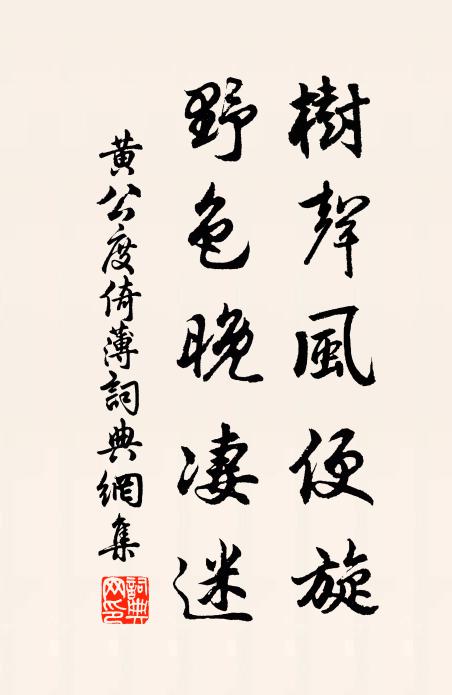 樹聲風便旋
野色晚凄迷
黃公度倚薄詞典網集
詞典網印